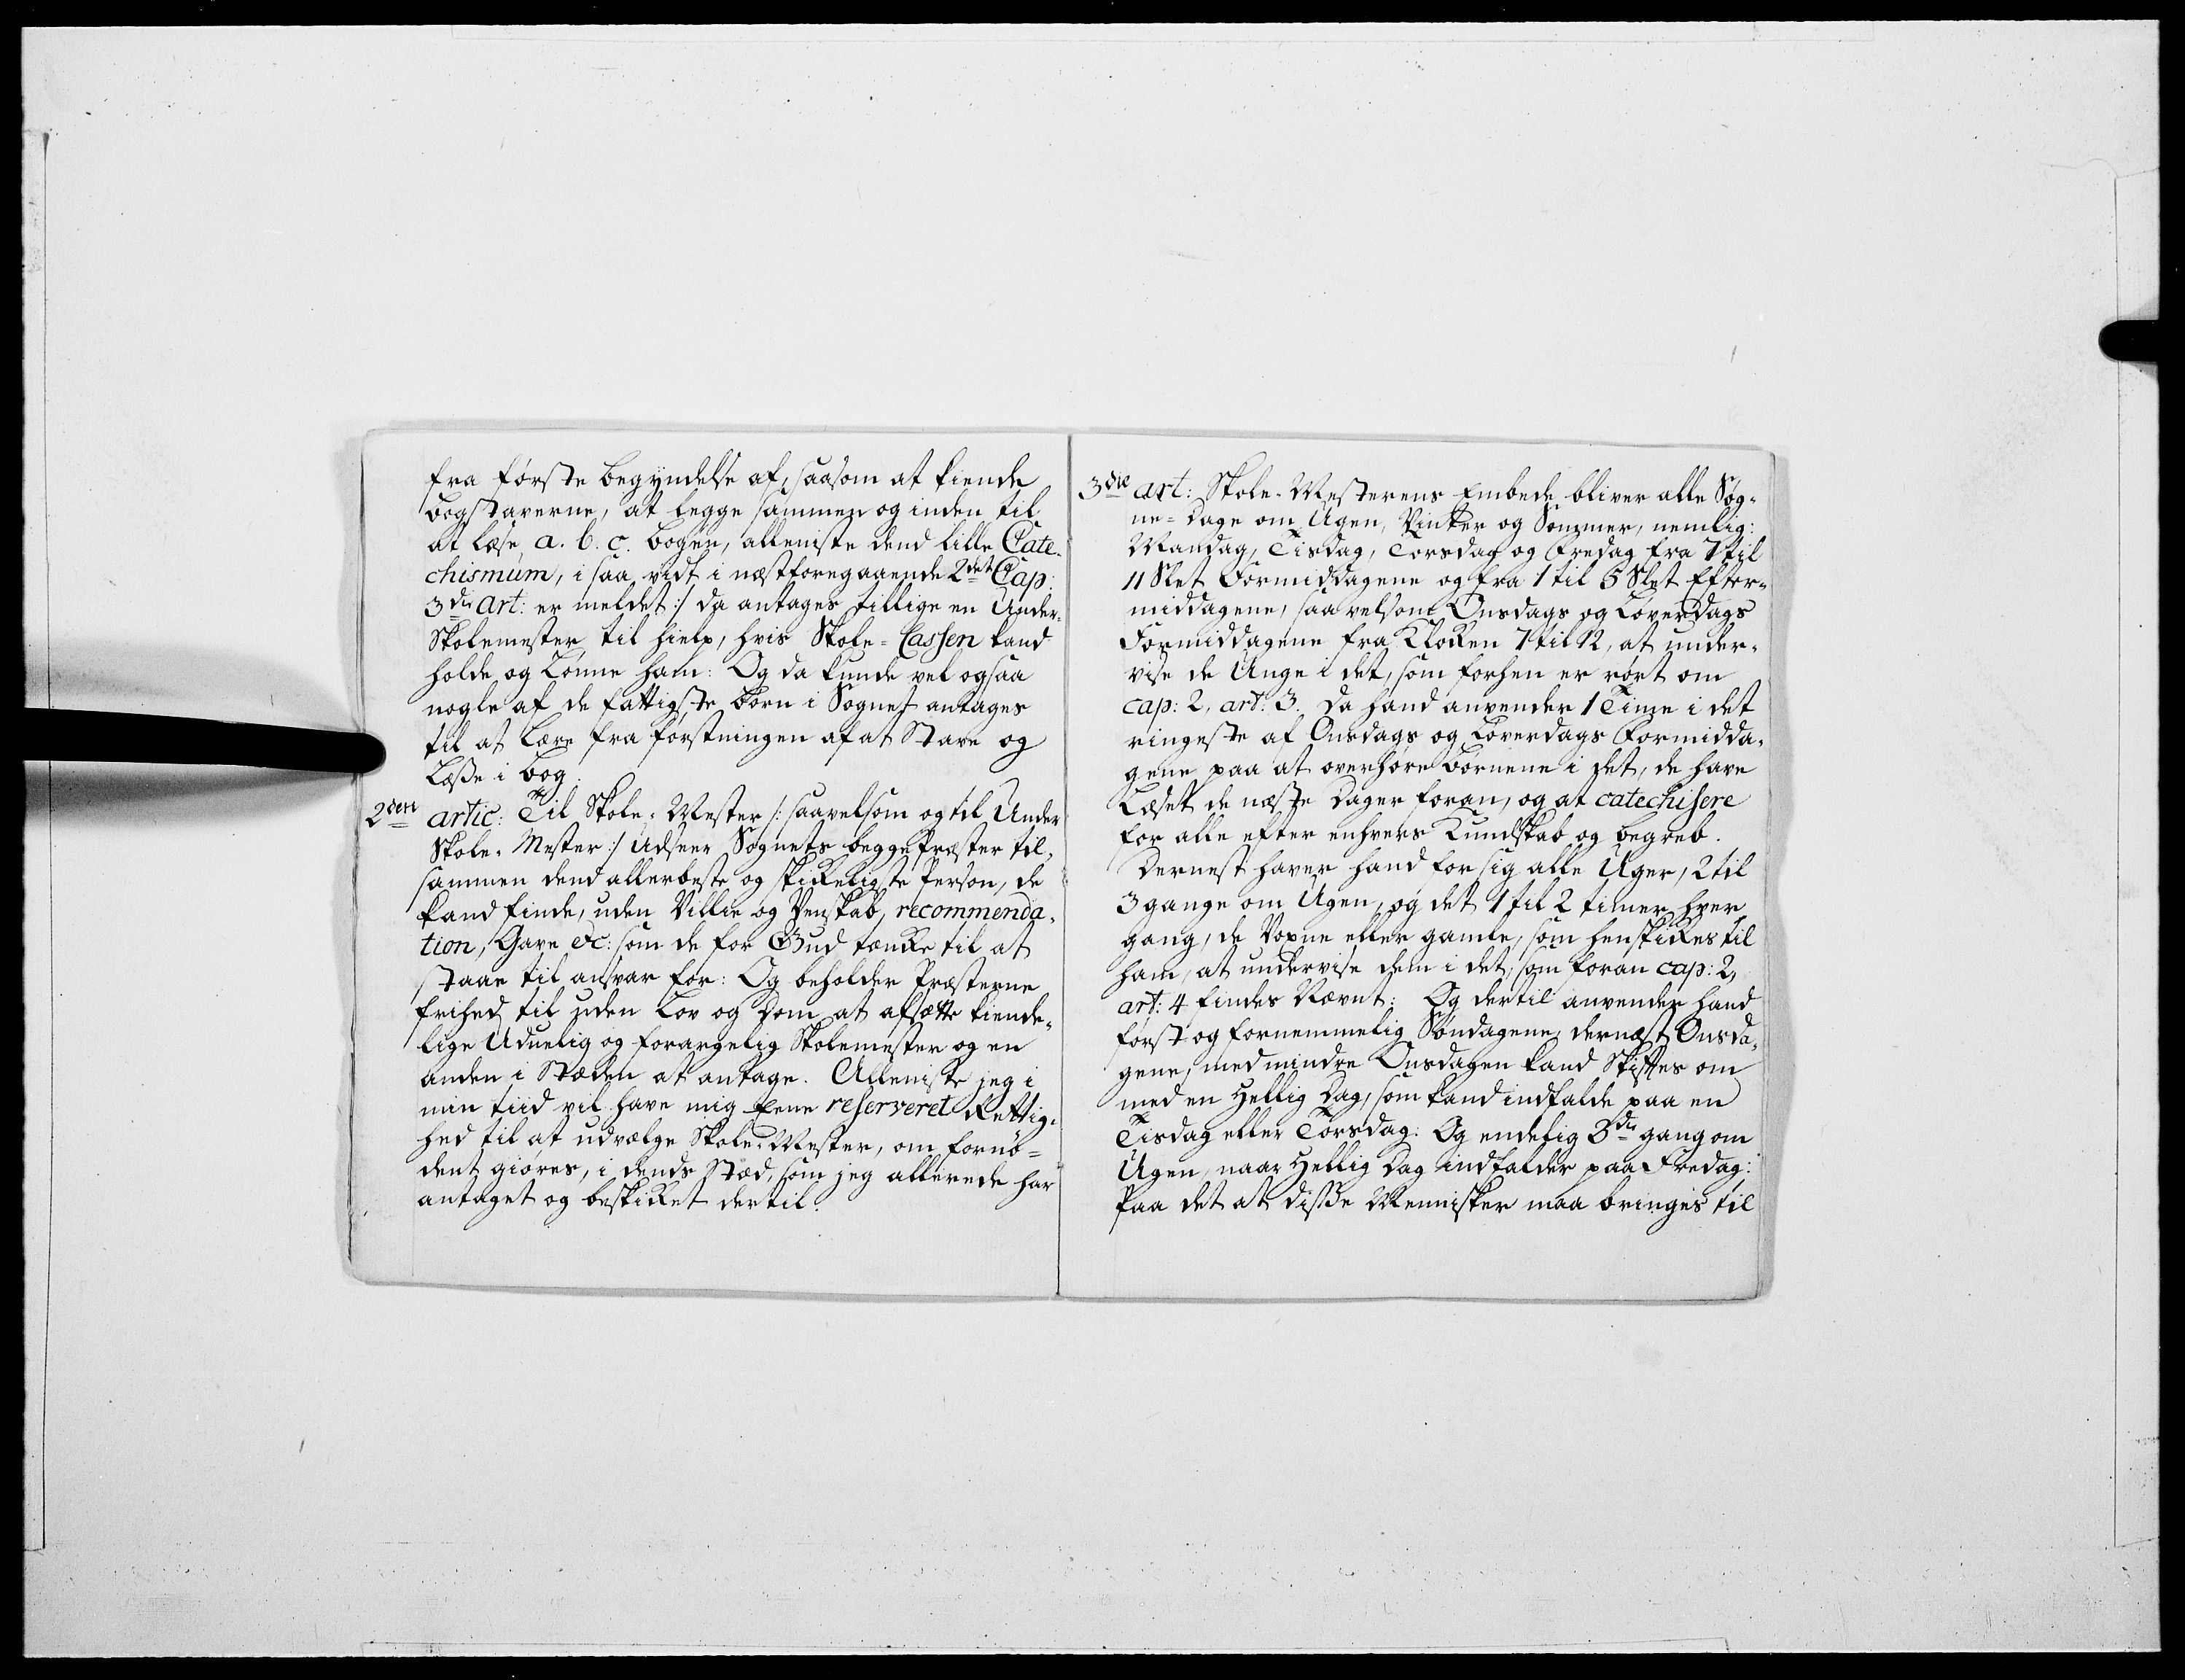 fra første begyndelse af, saasom at kiende
bogstaverne, at legge sammen og inden til
at læse a. b. c. bogen, alleniste dend lille Cate-
chismum, i saa vidt i næstforegaaende 2det Cap:
3die Art: er meldet :/ da antages tillige en Under-
Skolemester til hielp, hvis Skole-Cassen kand
holde og Lønne ham: Og da kunde vel ogsaa
nogle af de fattigste børn i Sognet antages
til at Lære fra førstningen af at Stave og
Læsse i bog.
2den artic: Til Skole-Mester /: saavelsom og til Under
Skole-Mester :/ Udseer Sognets begge Præster til-
sammen dend allerbeste og skikkeligste Person, de
kand finde, uden Villie og Venskab, recommenda-
tion, Gave &c: som de for Gud tænker til at
staae til ansvar for: Og beholder Præsterne
frihed til uden Lov og Dom at afsætte kiende-
lige Uduelig og forargelig Skolemester og en
anden i Stæden at antage. Alleniste jeg i
min tiid vil have mig Eene reserveret Rettig-
hed til at udvælge Skole-Mester, om fornø-
dent giøres, i dends Stæd, som jeg allerede har
antaget og beskikket dertil.
3die art: Skole-Mesterens Embede bliver alle Søg-
ne-Dage om Ugen, Vinter og Sommer, nemlig:
Mandag, Tisdag, Torsdag og Fredag fra 7 til
11 Slet Formiddagene og fra 1 til 5 Slet Efter-
middagene, saavelsom Onsdags og Løverdags
Formiddagene fra Klokken 7 til 12, at under-
vise de Unge i det, som forhen er rørt om
cap: 2, art: 3. Da hand anvender 1 Time i det
ringeste af Onsdags og Løverdags Formidda-
gene paa at overhøre børnene i det, de have
Læset de næste Dager foran, og at catechisere
for alle efter enhvers Kundskab og begreb.
Dernest haver hand for sig alle Uger, 2 til
3 gange om Ugen, og det 1 til 2 timer hver
gang, de Voxne eller gamle, som henskikkes til
ham, at undervise dem i det, som foran cap: 2,
art: 4 findes Nævnt: Og dertil anvender hand
først og fornemmelig Søndagene, dernæst Onsda-
gene, medmindre Onsdagen kand Skiftes om
med en Hellig Dag, som kand indfalde paa en
Tisdag eller Torsdag: Og endelig 3die gang om
Ugen, naar Hellig Dag indfalder paa Fredag:
Paa det at disse Mennisker maa bringes til